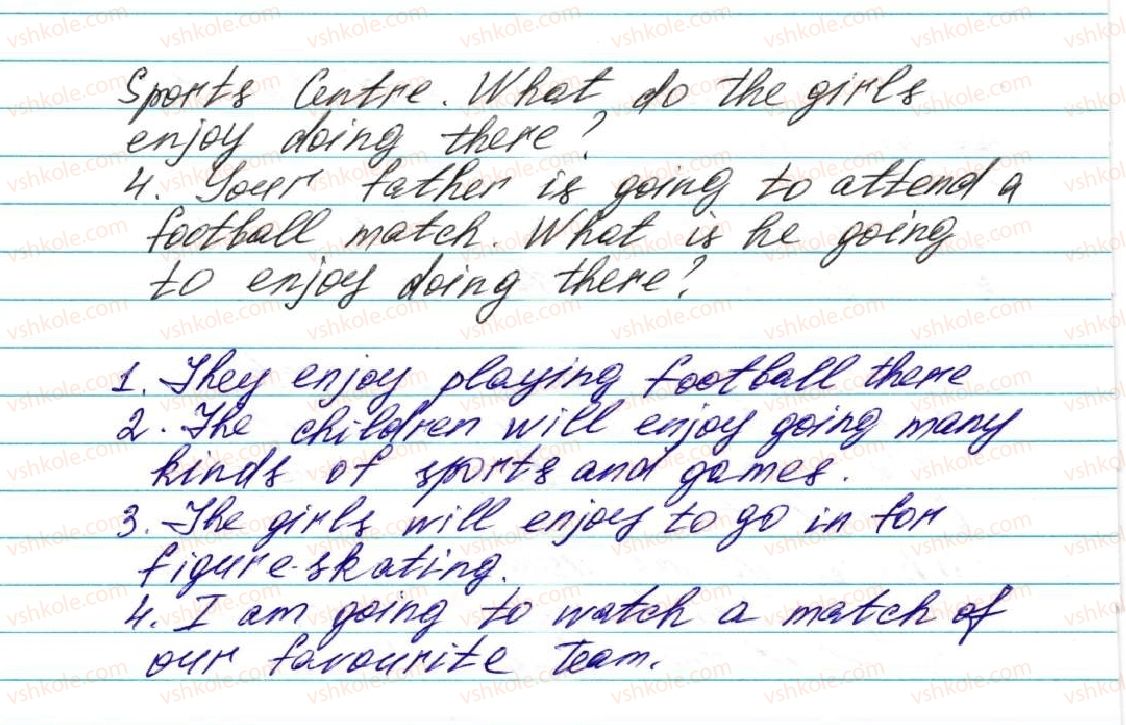 Sports Centre. What do the girls
enjoy doing there?
4. Your father is going to attend a
football match. What is he going
to enjoy doing there?
1. They enjoy playing football there
2. The children will enjoy going many
kinds of sports and games.
3. The girls will enjoy to go in for
figure-skating.
4. I am going to watch a match of
our favourite team.